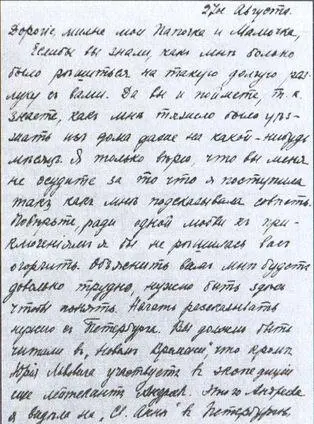 27го Августа.
Дорогіе, милые мои Папочка и Мамочка,
Еслибы вы знали, какъ мнѣ больно
было рѣшиться на такую долгую раз-
луку съ вами. Да вы и поймете, т. к.
знаете, какъ мнѣ тяжело было уѣз-
жать изъ дома даже на какой-нибудь
мѣсяцъ. Я только вѣрю, что вы меня
не осудите за то что я поступила
такъ какъ мнѣ подсказывала совѣсть.
Повѣрьте, ради одной любви къ при-
ключеніямъ я бы не рѣшилась васъ
огорчить. Объяснить вамъ мнѣ будетъ
довольно трудно, нужно быть здѣсь
чтобы понять. Начать разсказывать
нужно съ Петербурга. Вы должно быть
читали въ „Новомъ Времени", что кромѣ
Юрія Львовича участвуетъ въ экспедиціи
еще лейтенантъ Андреев. Этого Андреева
я видѣла на „Св. Аннѣ" въ Петербургѣ